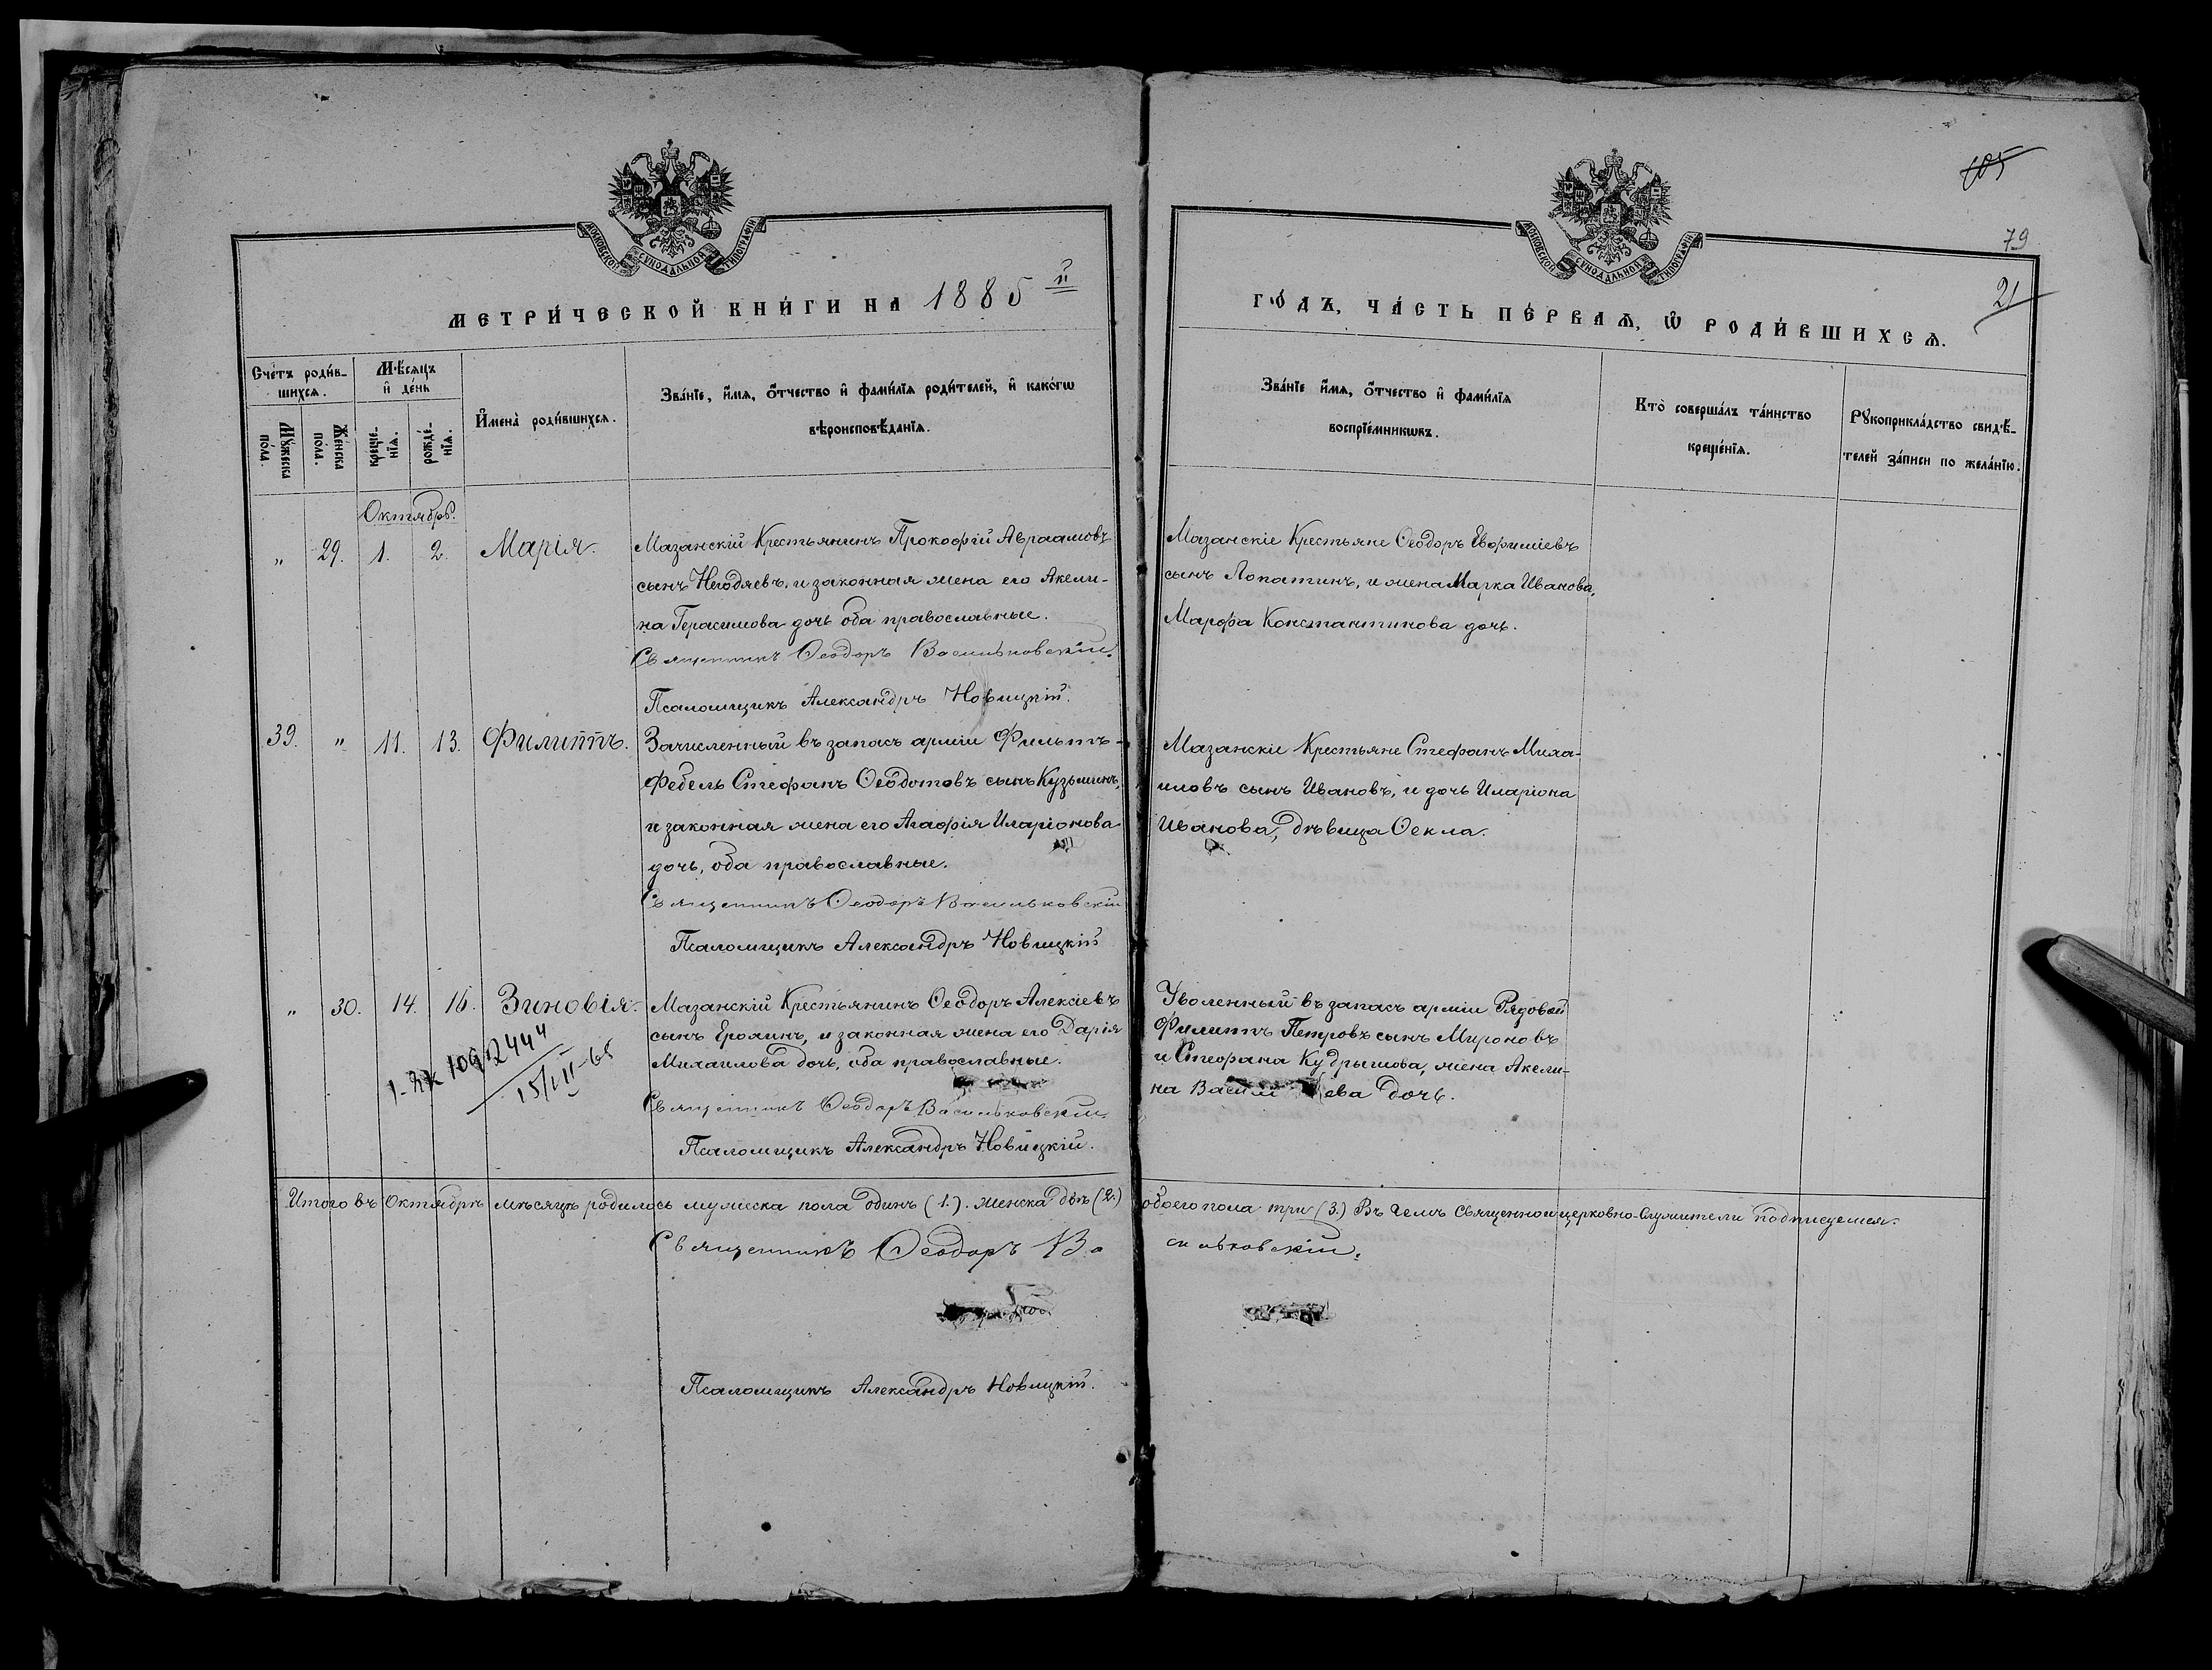 105
79
21
МОСКОВСКОЙ СѴНОДАЛЬНОЙ ТИПОГРАФІИ
МОСКОВСКОЙ СѴНОДАЛЬНОЙ ТИПОГРАФІИ
МЕТРИ́ЧЕСКОЙ КНИ́ГИ НА 1885й
ГО́ДЪ, ЧА́СТЬ ПЕ́РВАѦ, Ѿ РОДИ́ВШИХСѦ.
Сче́тъ роди́в-
шихсѧ.
Мꙋ́жеска по́ла.
Же́нска по́ла.
Мѣ́сѧцъ
и҆ де́нь
креще́-
нїѧ.
рожде́-
нїѧ.
И҆мена̀ роди́вшихсѧ.
Зва́нїе, и҆́мѧ, о҆́тчество и҆ фами́лїѧ роди́телей, и҆ како́гѡ
вѣроисповѣ́данїѧ.
Зва́нїе и҆́мѧ, о҆́тчество и҆ фами́лїѧ
воспрїе́мникѡвъ.
Кто̀ соверша́лъ та́инство
креще́нїѧ.
Рꙋкоприкла́дство свидѣ́-
телей за́писи по жела́нїю.
Октябрь.
„ 29. 1. 2. Марія.
Мазанскій Крестьянинъ Прокофій Авраамовъ
сынъ Негодяевъ, и законная жена его Акели-
на Герасимова дочь оба православные.
Священникъ Ѳеодоръ Васильковскій.
Псаломщикъ Александръ Новицкій.
Мазанскіе Крестьяне Ѳеодоръ Евфиміевъ
сынъ Лопатинъ, и жена Марка Иванова,
Марфа Константинова дочь.
39. „ 11. 13. Филиппъ.
Зачисленный въ запасъ арміи Фильтъ-
фебель Стефанъ Ѳеодотовъ сынъ Кузьминъ,
и законная жена его Агафія Иларіонова
дочь, оба православные.
Священникъ Ѳеодоръ Васильковскій
Псаломщикъ Александръ Новицкій
Мазанскіе Крестьяне Стефанъ Миха-
иловъ сынъ Ивановъ, и дочь Иларіона
Иванова, дѣвица Ѳекла.
„ 30. 14. 16. Зиновія.
Мазанскій Крестьянинъ Ѳеодоръ Алексіевъ
сынъ Ерохинъ, и законная жена его Дарія
Михаилова дочь, оба православные.
Священникъ Ѳеодоръ Васильковскій.
Псаломщикъ Александръ Новицкій.
Уволенный въ запасъ арміи Рядовой
Филиппъ Петровъ сынъ Мироновъ
и Стефана Кудряшова, жена Акели-
на Васильева дочь.
15/III-65
Итого въ Октябрѣ мѣсяцѣ родилось мужеска пола одинъ (1.). женска двѣ (2.) обоего пола три (3.) Въ чемъ священно и церковно-служители подписуемся.
Священникъ Ѳеодоръ Васильковскій.
Псаломщикъ Александръ Новицкій.